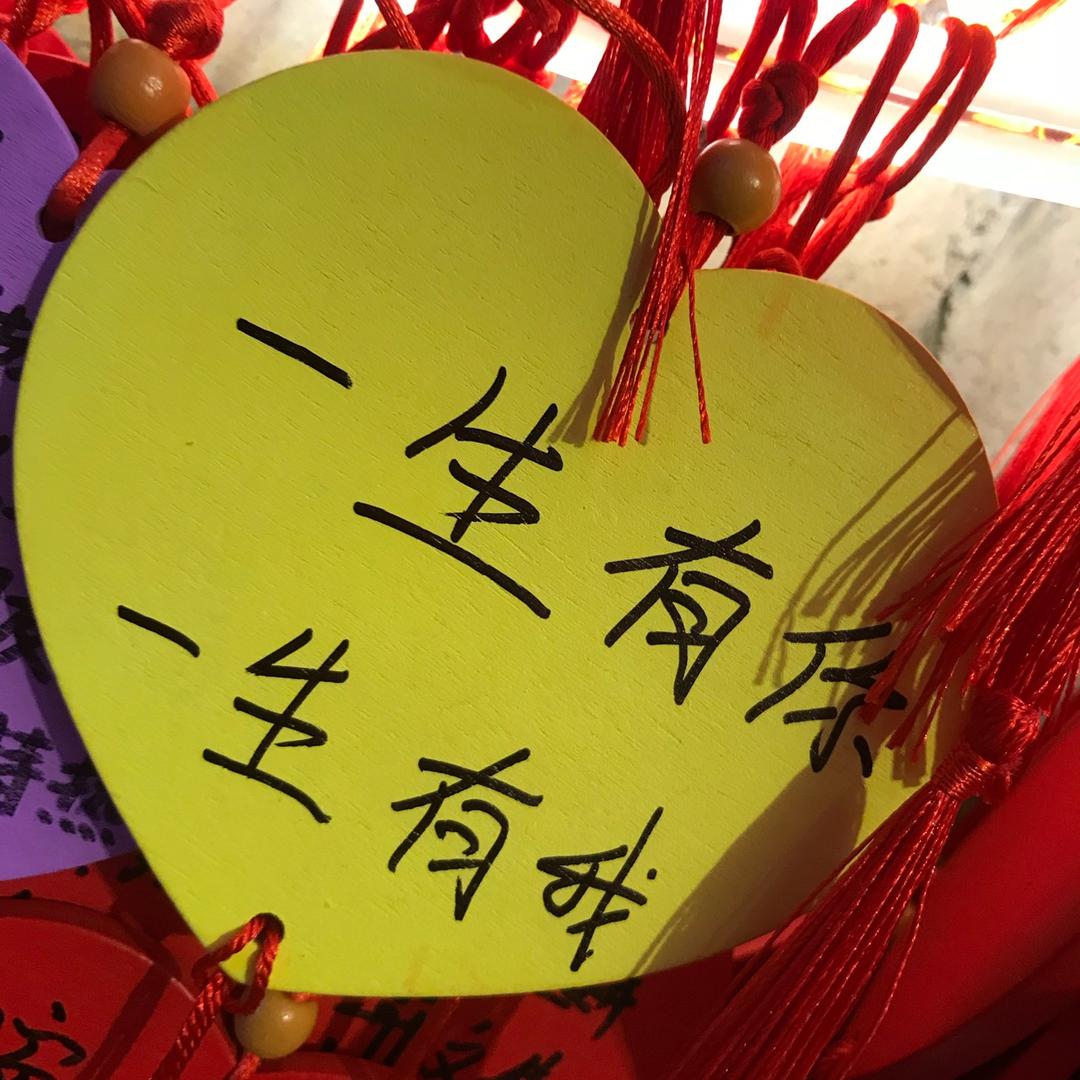 一生有你
一生有我